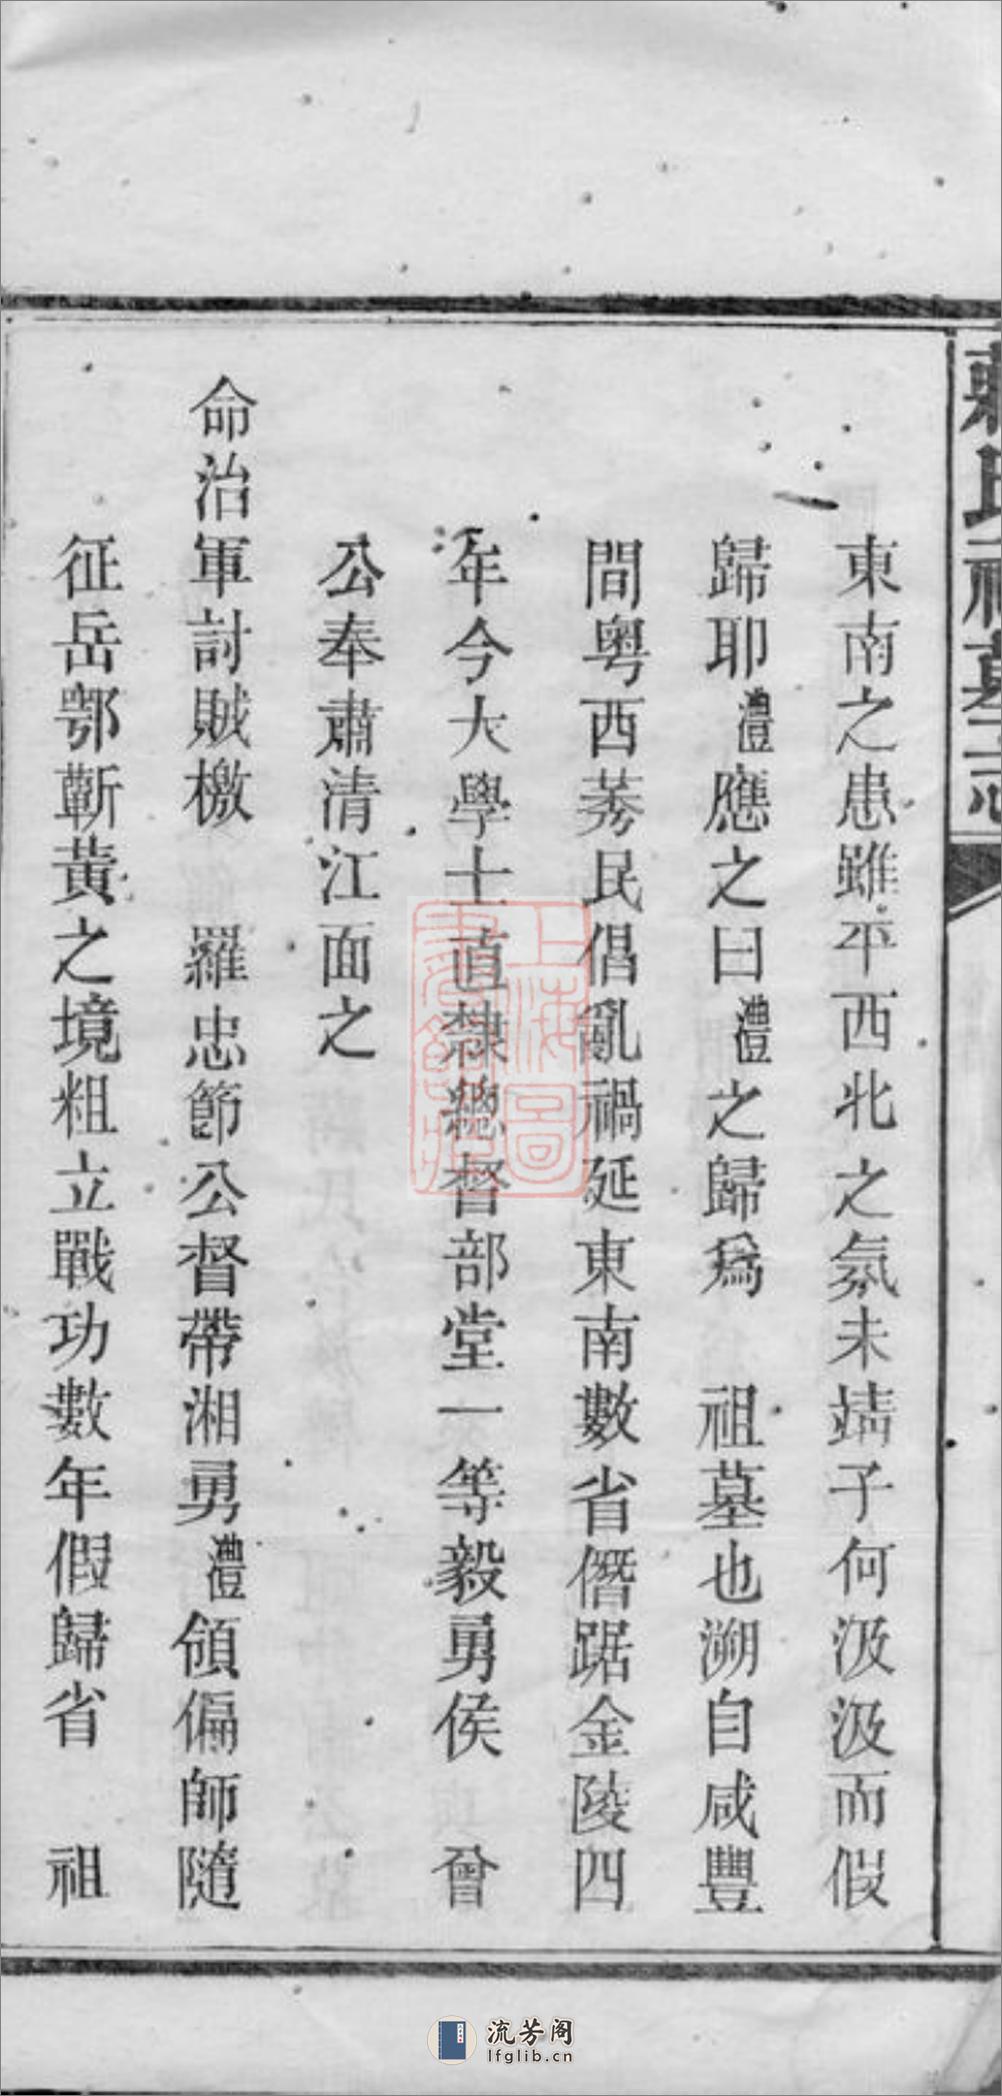 東南之患雖平西北之氛未靖子何汲汲而假
歸耶澧應之曰澧之歸爲　祖墓也溯自咸豐
間粤西莠民倡亂禍延東南數省僭踞金陵四
年今大學士直隸總督部堂一等毅勇侯　曾
公奉肅清江面之
命治軍討賊檄　羅忠節公督帶湘勇澧領偏師隨
征岳鄂蘄黃之境粗立戰功數年假歸省　祖
上海圖書館藏
流芳阁
lfglib.cn